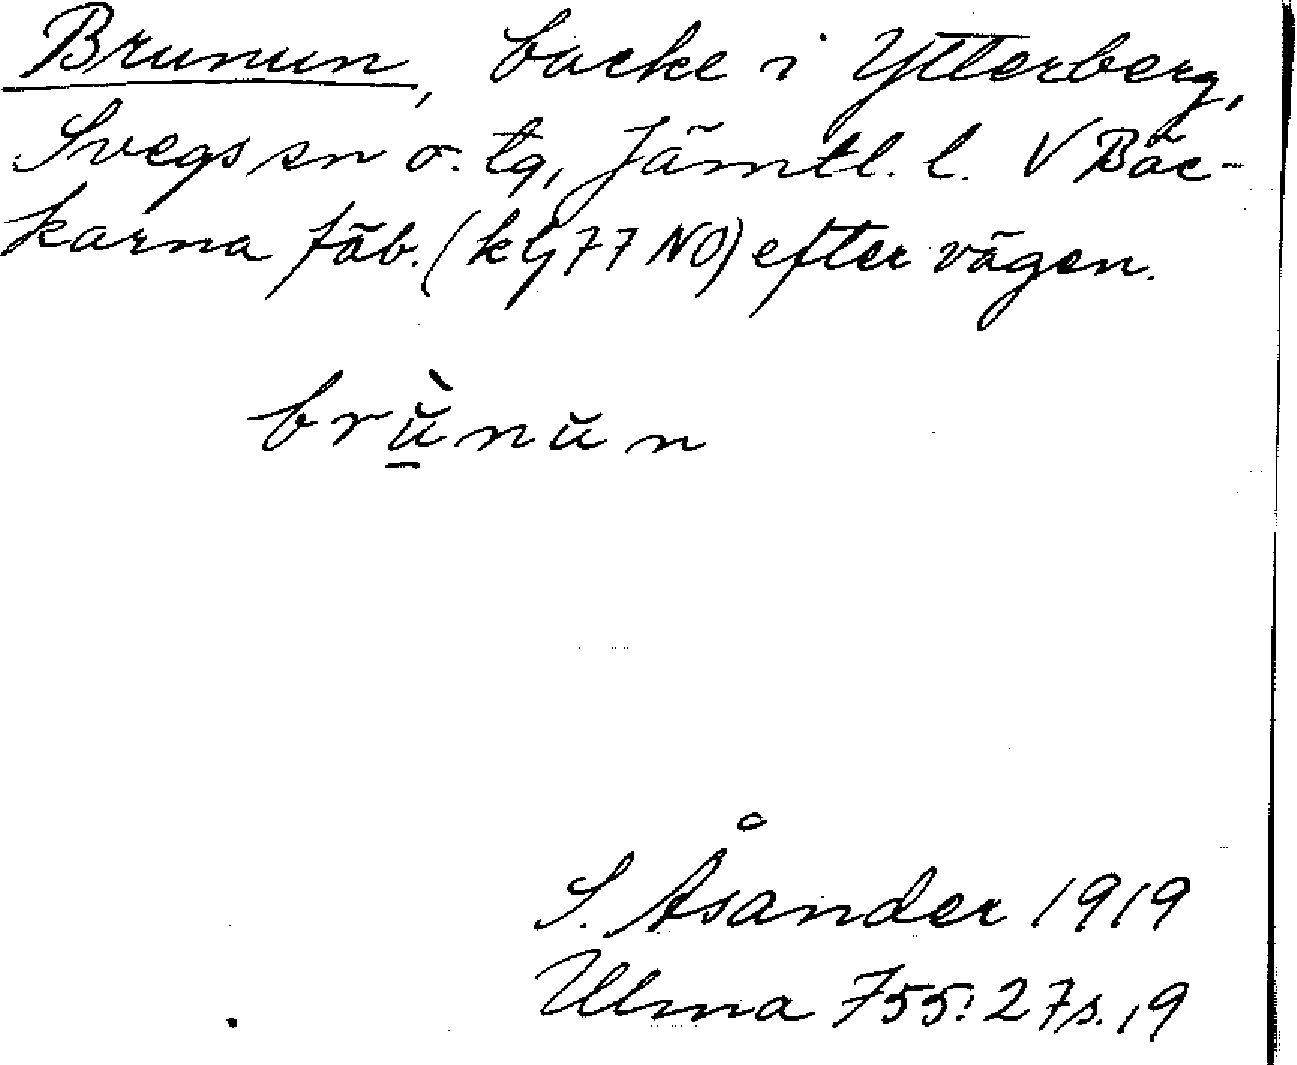 Brunun, backe i Ytterberg,
Svegs sn o. tg, Jämtl. l. V Bäc-
karna fäb. (kbl 77 NO) efter vägen.
brŭ̱̀nŭn
S. Åsander 1919
Ulma 755:27 s. 19